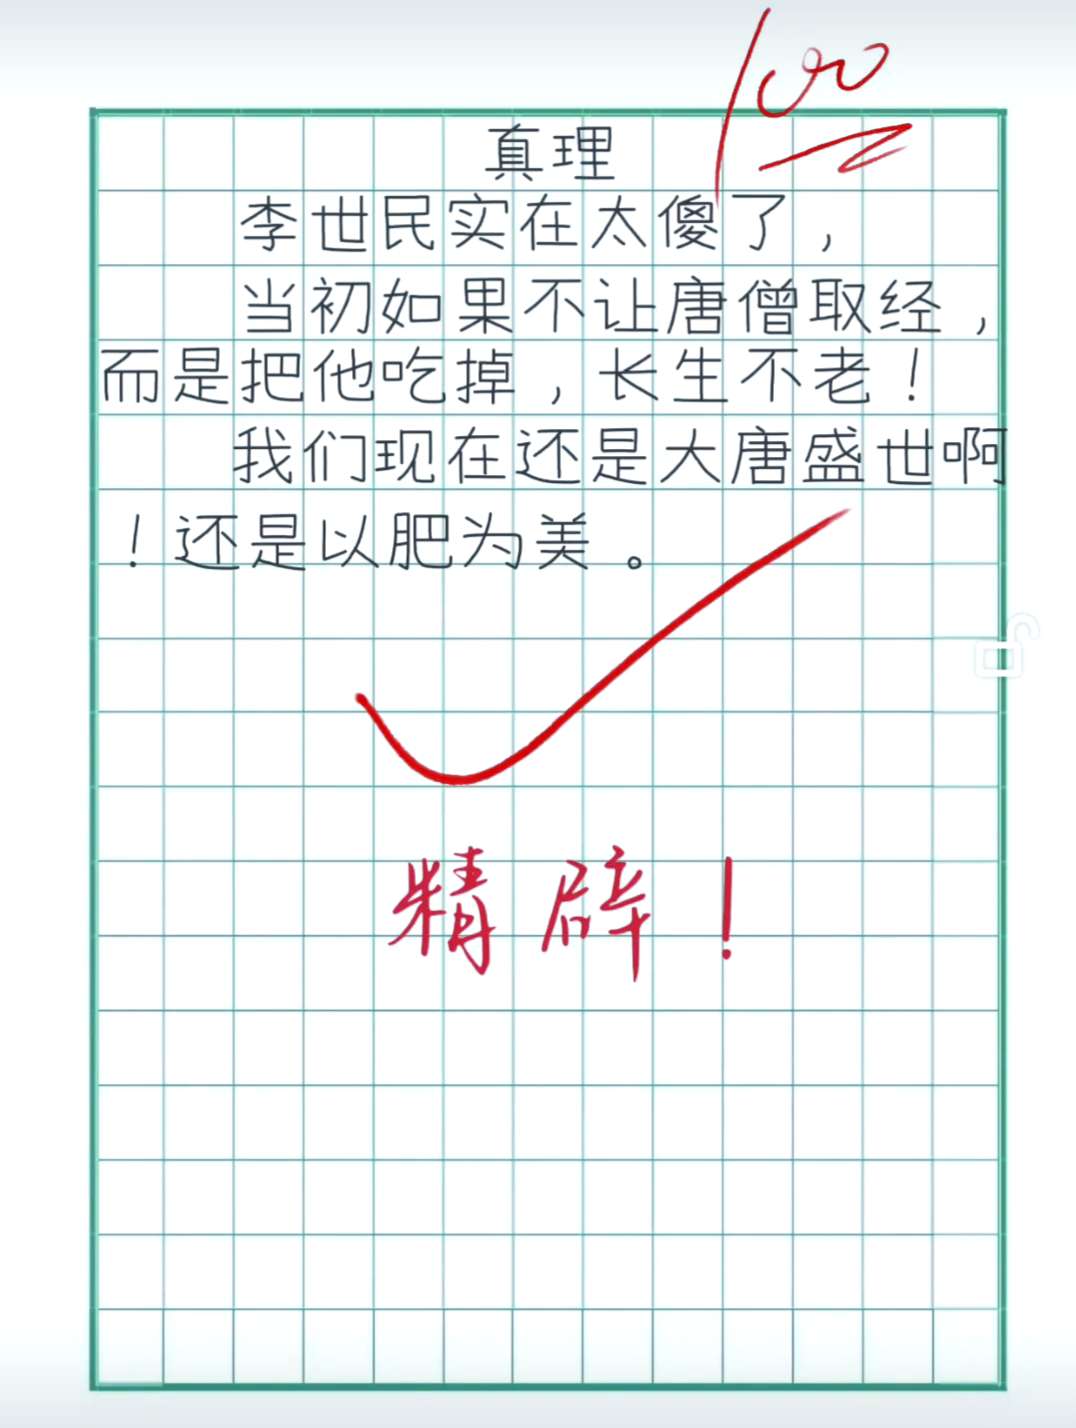 100
真理
李世民实在太傻了，
当初如果不让唐僧取经，
而是把他吃掉，长生不老！
我们现在还是大唐盛世啊
！还是以肥为美。
精辟！